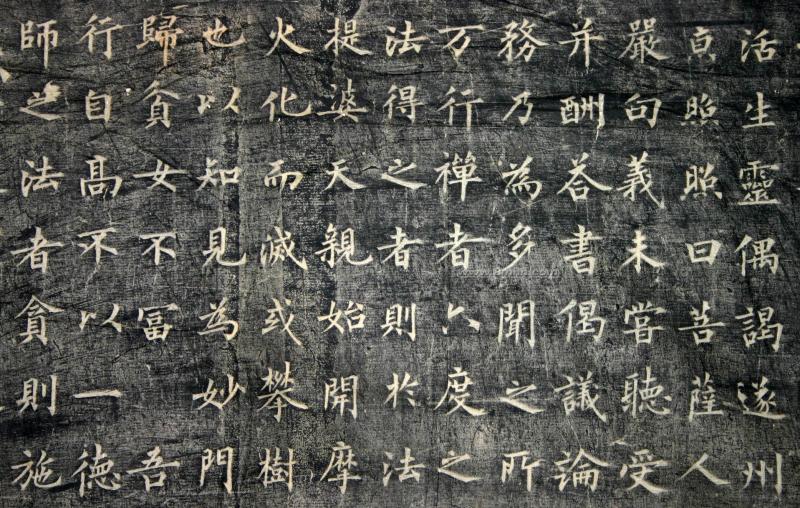 活生靈偶謁遂州
亰照照曰菩薩人
嚴句義未嘗聽受
并酬荅書偈議論
務乃為多聞之所
万行禪者六度之
法得之者則於法
提婆天親始開摩
火化而滅或攀樹
也以知見為妙門
歸貧女不冨 吾
行自髙不以一德
師之法者貪則施